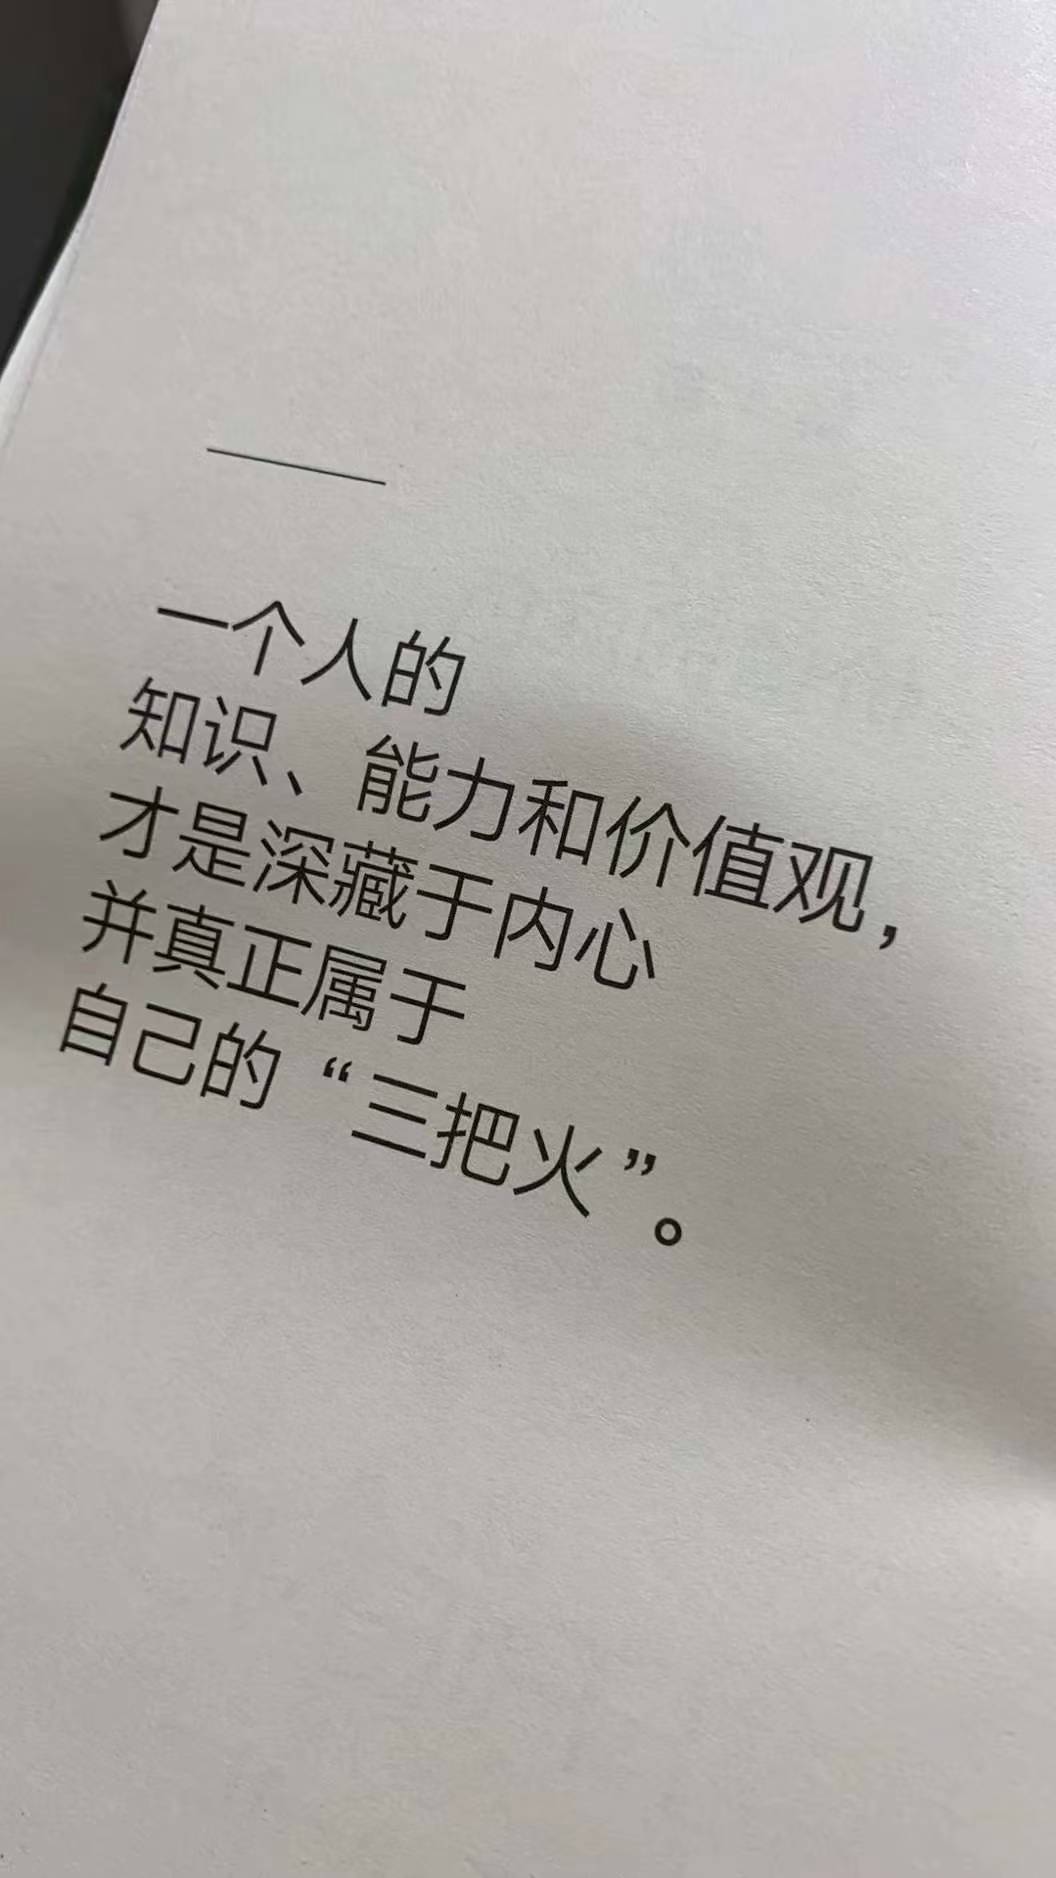 一个人的
知识、能力和价值观，
才是深藏于内心
并真正属于
自己的“三把火”。